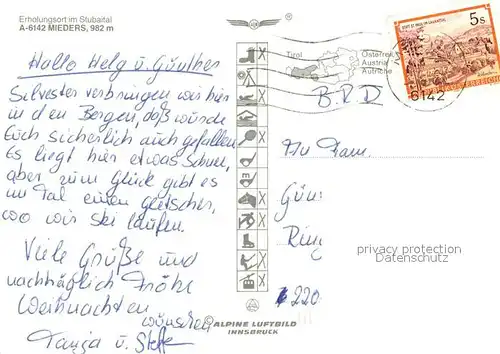 Erholungsort im Stubaital
A-6142 MIEDERS, 982 m
Hallo Helg u. Günther
Silvester verbringen wir hier
in den Bergen, daß würde
Euch sicherlich auch gefallen
Es liegt hier etwas Schnee,
aber zum Glück gibt es
im Tal einen Gletscher,
wo wir Ski laufen.
Viele Grüße und
nachträglich Frohe
Weihnachten
wünschen
Tanja u. Steffen
Tirol
Österreich
Austria
Autriche
6142
5s
STIFT ST. PAUL IM LAVANTTAL
REPUBLIK ÖSTERREICH
BRD
An Fam.
Gün
Ring
220
privacy protection
Datenschutz
© ALPINE LUFTBILD
INNSBRUCK